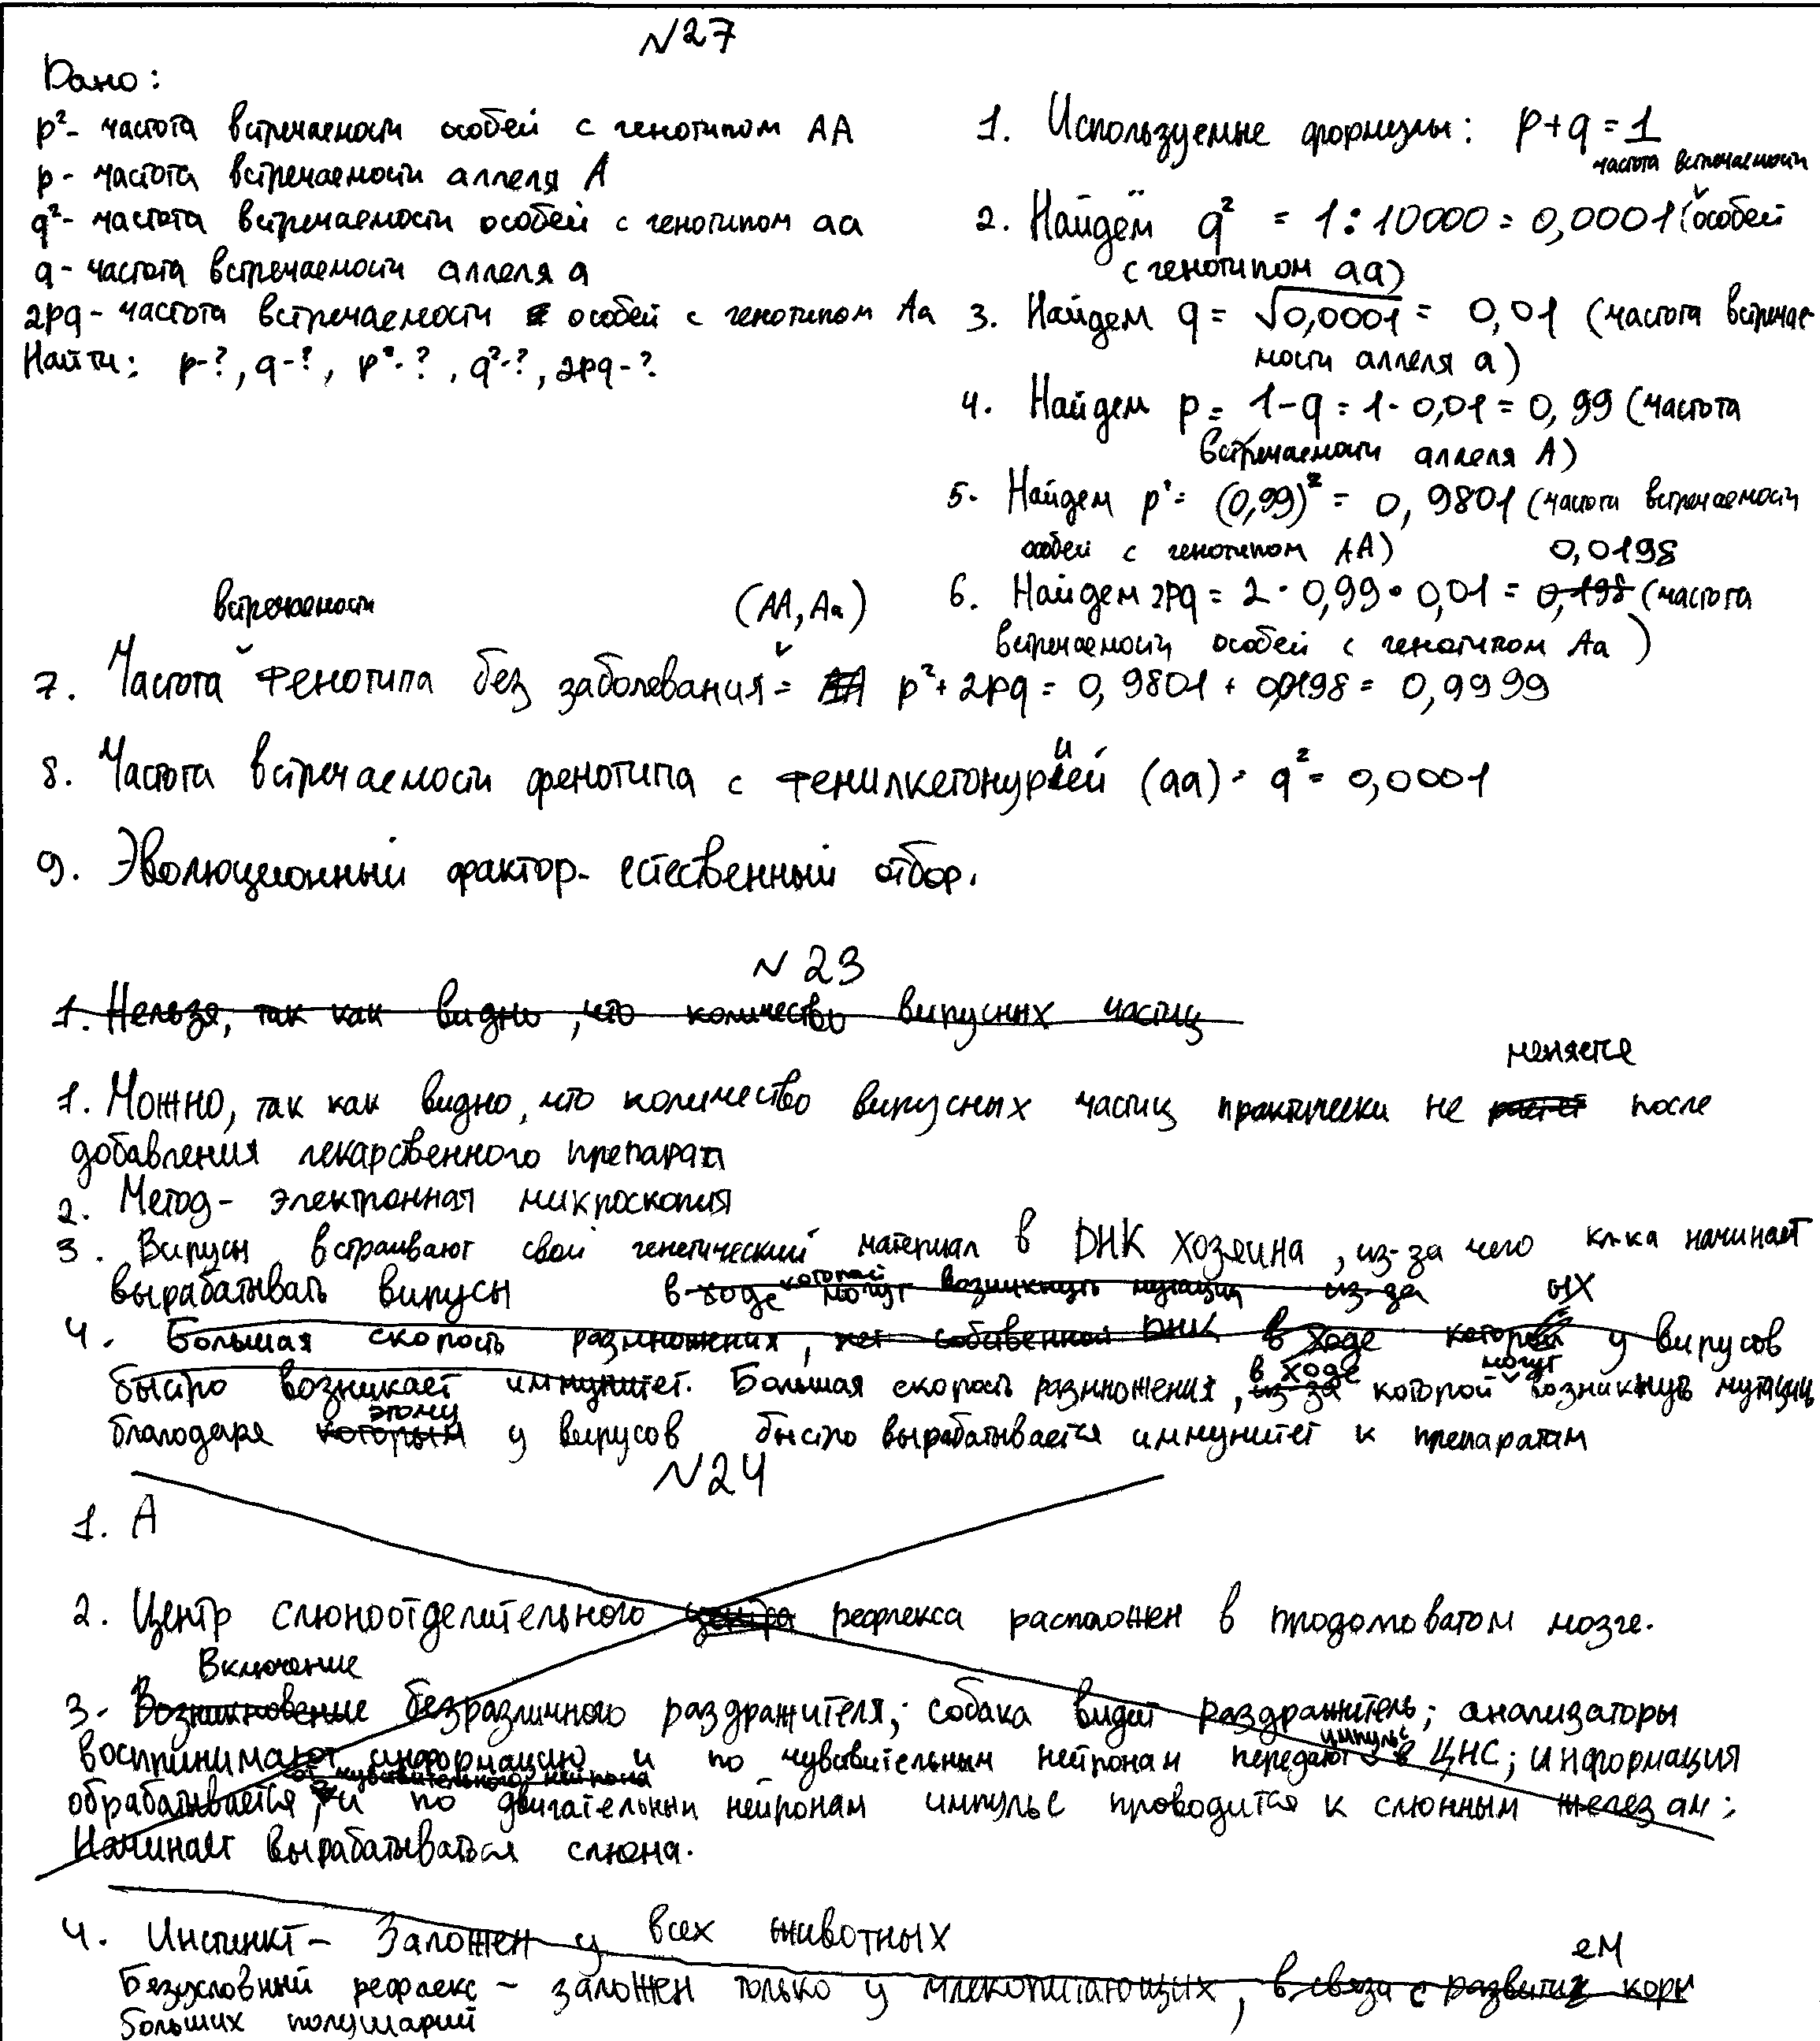 №27
Дано:
p²- частота встречаемости особей с генотипом АА
p- частота встречаемости аллеля А
q²- частота встречаемости особей с генотипом аа
q- частота встречаемости аллеля а
2pq- частота встречаемости особей с генотипом Аа
Найти: p-?, q-?, p²-?, q²-?, 2pq-?
1. Используемые формулы: p+q=1
частота встречаемости
2. Найдём q² = 1:10000=0,0001 (особей
с генотипом аа)
3. Найдем q= √0,0001 = 0,01 (частота встречае-
мости аллеля а)
4. Найдем p= 1-q=1-0,01=0,99 (частота
встречаемости аллеля А)
5. Найдем p²= (0,99)²= 0,9801 (частота встречаемости
особей с генотипом АА) 0,0198
6. Найдем 2pq= 2·0,99·0,01= 0,198 (частота
встречаемости особей с генотипом Аа)
встречаемости (АА, Аа)
7. Частота фенотипа без заболевания= АА p²+2pq= 0,9801+0,0198= 0,9999
8. Частота встречаемости фенотипа с фенилкетонурией (аа)- q²= 0,0001
9. Эволюционный фактор- естественный отбор.
№23
1. Нельзя, так как видно, что количество вирусных частиц
меняется
1. Можно, так как видно, что количество вирусных частиц практически не растет после
добавления лекарственного препарата
2. Метод- электронная микроскопия
3. Вирусы встраивают свой генетический материал в ДНК хозяина, из-за чего кл-ка начинает
вырабатывать вирусы в ходе которой могут возникнуть мутации из-за ых
4. Большая скорость размножения, нет собственной ДНК в ходе которой у вирусов
быстро возникает иммунитет. Большая скорость размножения, из-за в ходе которой могут возникнуть мутации
благодаря которым этому у вирусов быстро вырабатывается иммунитет к препаратам
№24
1. А
2. Центр слюноотделительного центра рефлекса расположен в продолговатом мозге.
Включение
3- Возникновение безразличного раздражителя; собака видит раздражитель; анализаторы
воспринимают информацию и по чувствительным нейронам передают импульс в ЦНС; информация
от чувствительного нейрона
обрабатывается, и по двигательным нейронам импульс проводится к слюнным железам;
Начинает вырабатываться слюна.
4. Инстинкт- Заложен у всех животных
ем
Безусловный рефлекс - заложен только у млекопитающих, в связи с развити коры
больших полушарий